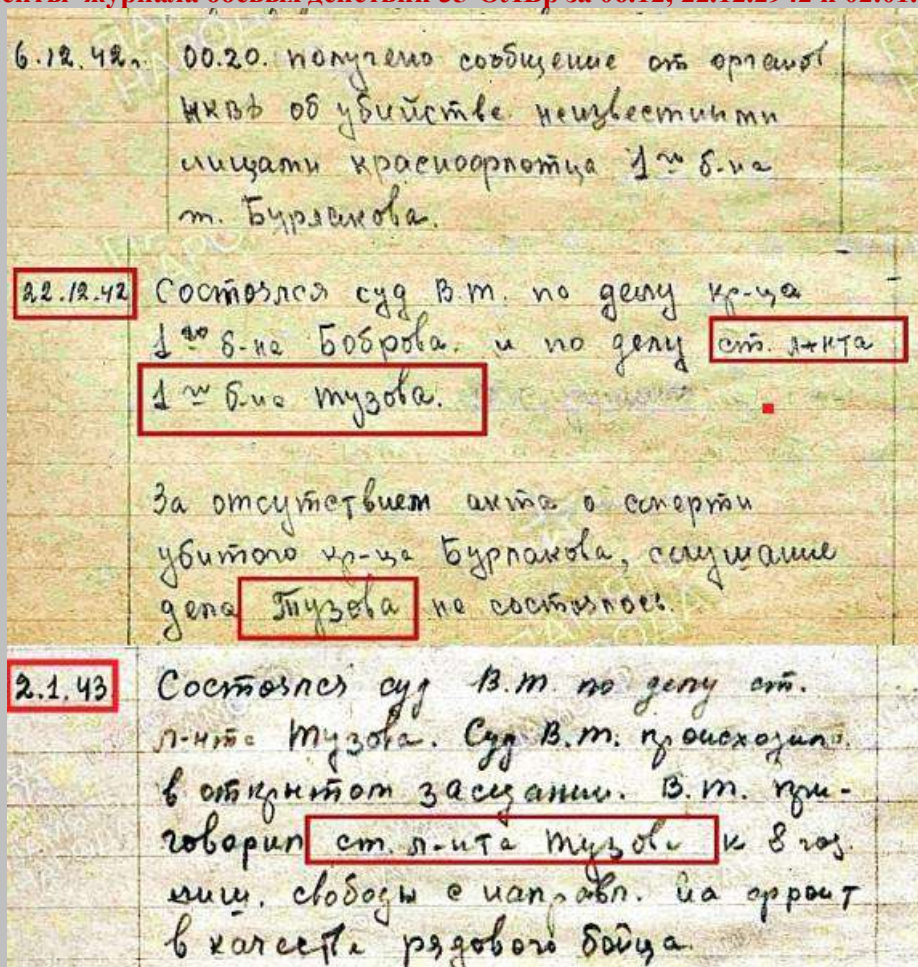 журнала боевых действий
6.12.42г. 00.20. получено сообщение от органов
НКВД об убийстве неизвестными
лицами краснофлотца 1го б-на
т. Бурлакова.
22.12.42 Состоялся суд В.т. по делу кр-ца
1го б-на Боброва. и по делу ст. л-нта
1го б-на Тузова.
За отсутствием акта о смерти
убитого кр-ца Бурлакова, слушание
дела Тузова не состоялось.
2.1.43 Состоялся суд В.т. по делу ст.
л-нта Тузова. Суд В.т. происходил
в открытом заседании. В.т. при-
говорил ст. л-нта Тузова к 8 год.
лиш. свободы с направл. на фронт
в качестве рядового бойца.